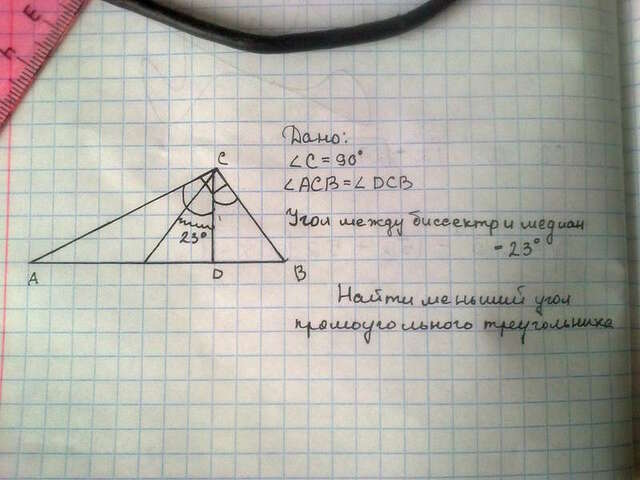 Дано:
∠C = 90°
∠ACB = ∠DCB
Угол между биссектр и медиан
- 23°
Найти меньший угол
прямоугольного треугольника
C
23°
A
D
B